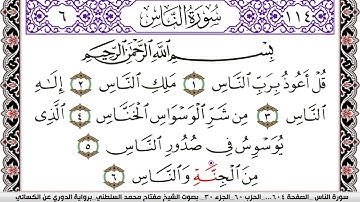 ٦ سُورَةُ النَّاسِ ١١٤
بِسْمِ اللَّهِ الرَّحْمَٰنِ الرَّحِيمِ
قُلْ أَعُوذُ بِرَبِّ النَّاسِ ١ مَلِكِ النَّاسِ ٢ إِلَٰهِ
النَّاسِ ٣ مِن شَرِّ الْوَسْوَاسِ الْخَنَّاسِ ٤ الَّذِى
يُوَسْوِسُ فِى صُدُورِ النَّاسِ ٥
مِنَ الْجِنَّةِ وَالنَّاسِ ٦
سورة الناس الصفحة ٦٠٤ ... الحزب ٦٠ الجزء ٣٠ بصوت الشيخ مفتاح محمد السلطني برواية الدوري عن الكسائي